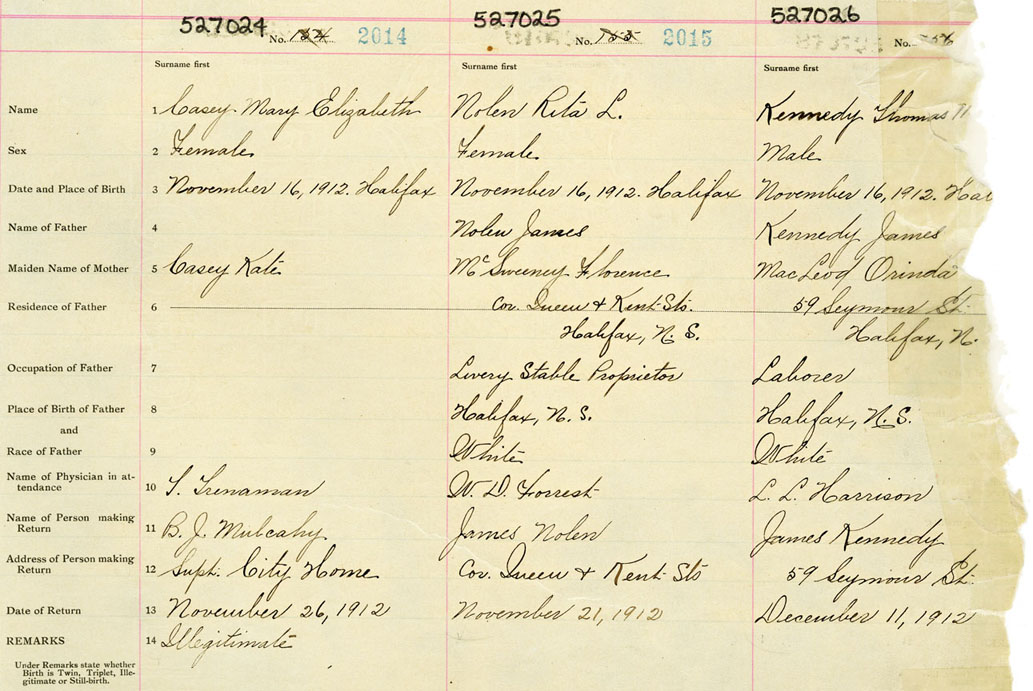 527024 527025 527026
No. 2014 No. 2015 No.
Surname first Surname first Surname first
Name 1 Casey Mary Elizabeth Nolen Rita L. Kennedy Thomas
Sex 2 Female Female Male
Date and Place of Birth 3 November 16, 1912. Halifax November 16, 1912. Halifax November 16, 1912. Hal
Name of Father 4 Nolen James Kennedy James
Maiden Name of Mother 5 Casey Kate McSweeney Florence MacLeod Orinda
Residence of Father 6 Cor. Queen & Kent Sts. 59 Seymour St.
Halifax, N. S. Halifax, N.
Occupation of Father 7 Livery Stable Proprietor Laborer
Place of Birth of Father 8 Halifax, N. S. Halifax, N.S.
and
Race of Father 9 White White
Name of Physician in at-
tendance 10 S. Trenaman W. D. Forrest L. L. Harrison
Name of Person making
Return 11 B. J. Mulcahy James Nolen James Kennedy
Address of Person making
Return 12 Supt. City Home Cor. Queen & Kent Sts 59 Seymour St.
Date of Return 13 November 26, 1912 November 21, 1912 December 11, 1912
REMARKS 14 Illegitimate
Under Remarks state whether
Birth is Twin, Triplet, Ille-
gitimate or Still-birth.